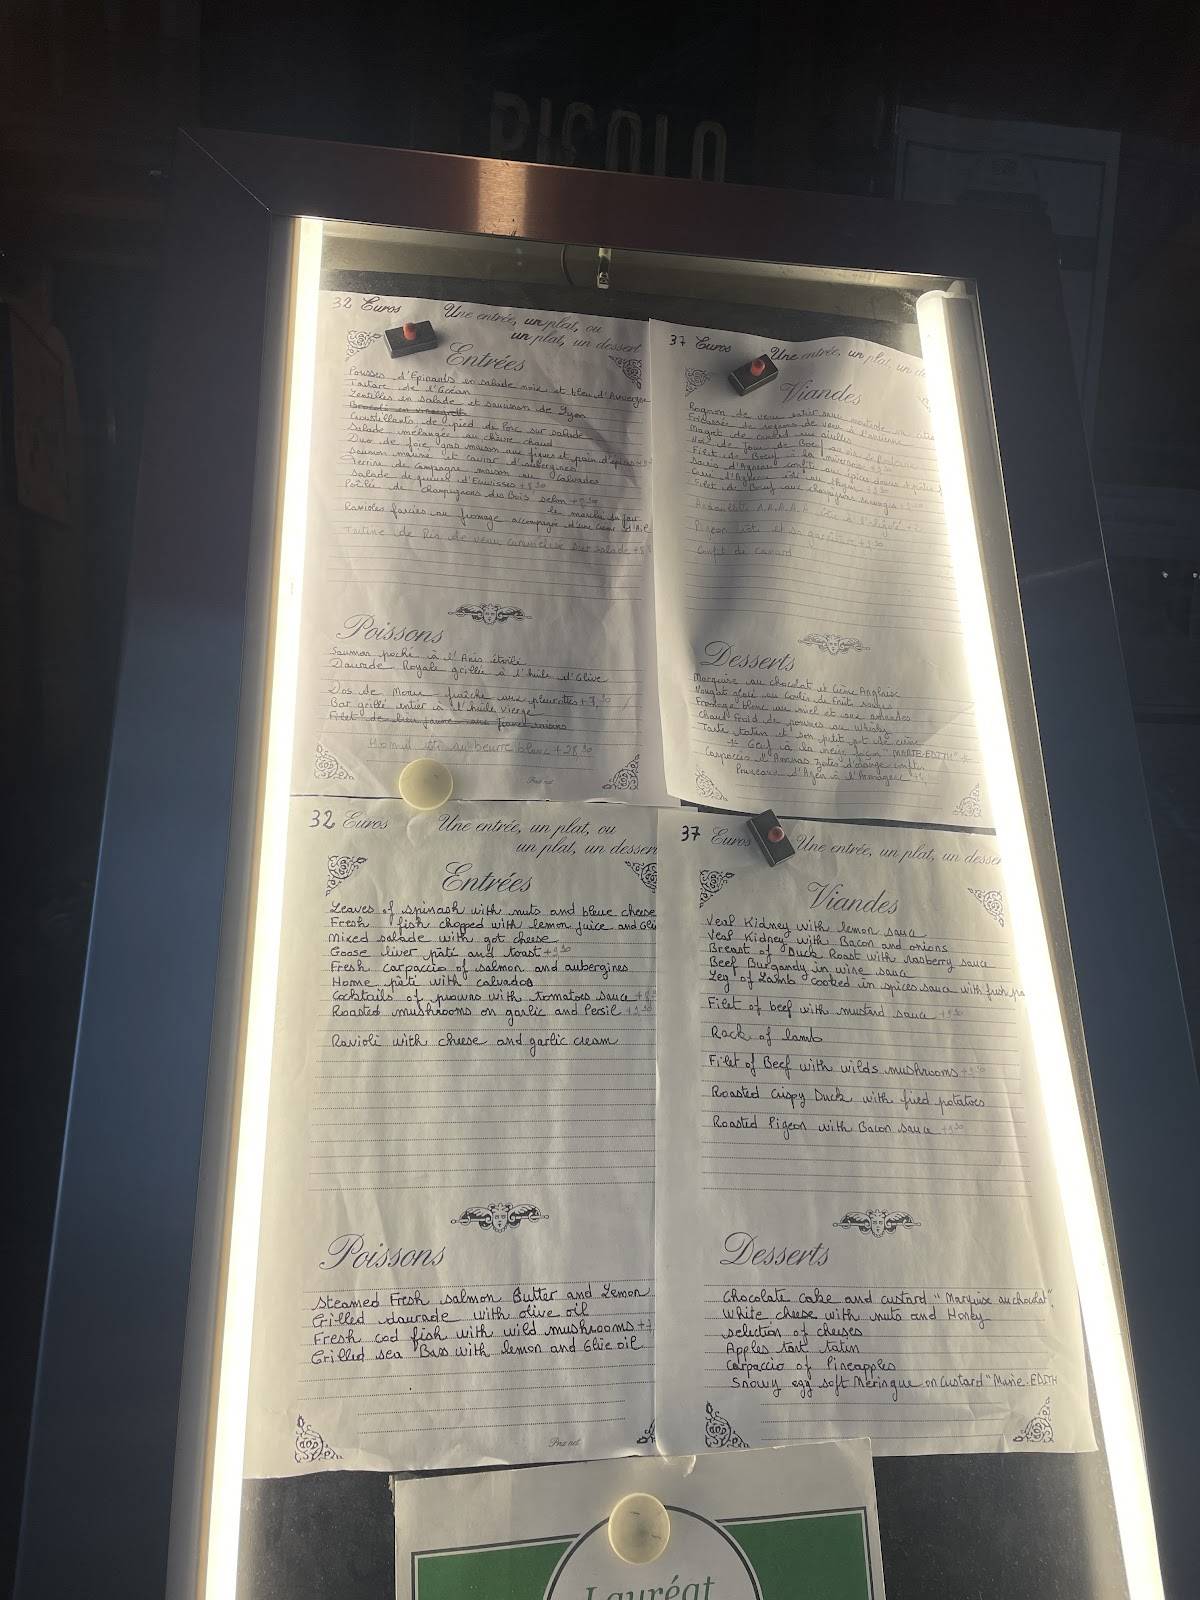 PICOLO
32 Euros
Une entrée, un plat, ou
un plat, un dessert
Entrées
Pousses d'Epinards en salade noix et bleu d'Auvergne
Tartare de l'Océan
Lentilles en salade et saucisson de Lyon
Croustillants de pied de Porc sur salade
Salade mélangée au chèvre chaud
Duo de foie gras maison aux figues et pain d'épices
Saumon mariné et caviar d'aubergines
Terrine de Campagne maison au Calvados
Salade de d'Ecrevisses
Poêlée de Champignons des Bois selon
le marché du jour
Ravioles farcies au fromage accompagné d'une Crème d'Ail
Tartine de Ris de veau sur salade
Poissons
Saumon poché à l'Anis étoilé
Daurade Royale grillée à l'huile d'Olive
Dos de Morue fraîche aux pleurotes +7,50
Bar grillé entier à l'huile vierge
Homard rôti au beurre blanc +28,50
Pnx net
37 Euros
Une entrée, un plat, un de
Viandes
Rognon de veau entier sauce moutarde
Fricassée de rognons de veau à l'ancienne
Magret de canard aux airelles
Filet de Boeuf à la
Filet de Boeuf aux champignons sauvages
Andouillette A.A.A.A.A.
Pigeon rôti et sa garniture
Confit de canard
Desserts
Marquise au chocolat et Crème Anglaise
Nougat glacé au Coulis de Fruits rouges
Fromage blanc au miel et aux amandes
Chaud Froid de pommes au Whisky
Tarte tatin et son petit pot de crème
Oeuf à la neige façon "MARIE-EDITH"
Carpaccio d'Ananas zestes d'orange confits
Pruneaux d'Agen à l'Armagnac
32 Euros
Une entrée, un plat, ou
un plat, un dessert
Entrées
Leaves of spinash with nuts and bleue cheese
Fresh fish chopped with lemon juice and Oli
Mixed salade with got cheese
Goose liver pâté and toast +9,50
Fresh carpaccio of salmon and aubergines
Home pâté with calvados
Cocktails of prowns with tomatoes sauce +8
Roasted mushrooms on garlic and Persil +9,50
Ravioli with cheese and garlic cream
Poissons
Steamed Fresh salmon Butter and Lemon
Grilled daurade with olive oil
Fresh cod fish with wild mushrooms +7
Grilled sea Bass with lemon and Olive oil
Pnx net
37 Euros
Une entrée, un plat, un desser
Viandes
Veal Kidney with lemon sauce
Veal Kidney with Bacon and onions
Breast of Duck Roast with rasberry sauce
Beef Burgandy in wine sauce
Leg of Lamb cooked in spices sauce with fresh
Filet of beef with mustard sauce +9,50
Rack of lamb
Filet of Beef with wilds mushrooms +9,50
Roasted Crispy Duck with fried potatoes
Roasted Pigeon with Bacon sauce +9,50
Desserts
Chocolate cake and custard "Marquise au chocolat"
White cheese with nuts and Honey
Selection of cheeses
Apples tart tatin
Carpaccio of Pineapples
Snowy egg soft Meringue on Custard "Marie-EDITH
Lauréat